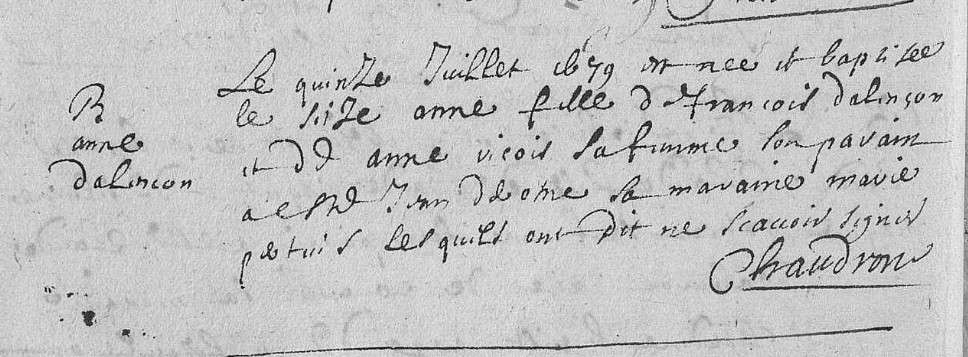 B
anne
dalençon
Le quinze Juillet 1679 est nee et baptisee
le seize anne fille de francois dalençon
et de anne viçois sa femme son parain
a esté Jean sa maraine marie
pertuis lesquels ont dit ne scavoir signer
Chaudron